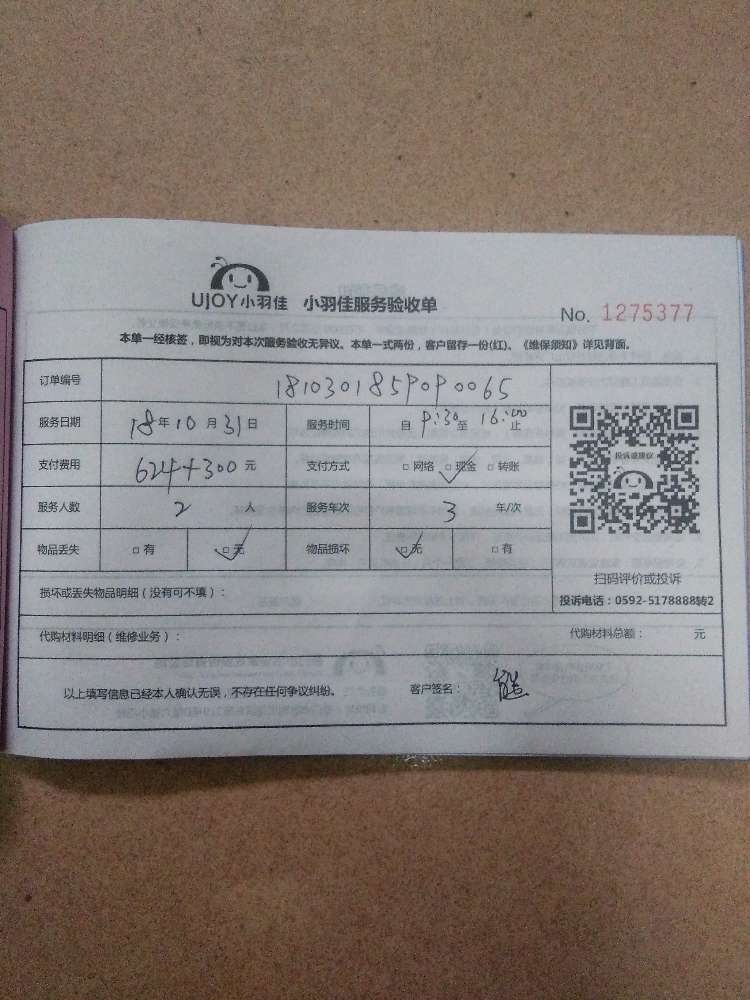 UJOY小羽佳 小羽佳服务验收单
No. 1275377
本单一经核签，即视为对本次服务验收无异议。本单一式两份，客户留存一份(红)、《维保须知》详见背面。
订单编号 1810301859090065
服务日期 18年10月31日 服务时间 自9:30至16:00止
支付费用 624+300元 支付方式 □网络 ☑现金 □转账
投诉或建议
服务人数 2人 服务年次 3年/次
物品丢失 □有 ☑无 物品损坏 ☑无 □有
扫码评价或投诉
损坏或丢失物品明细（没有可不填）：
投诉电话：0592-5178888转2
代购材料明细（维修业务）： 代购材料总额： 元
以上填写信息已经本人确认无误，不存在任何争议纠纷。 客户签名：